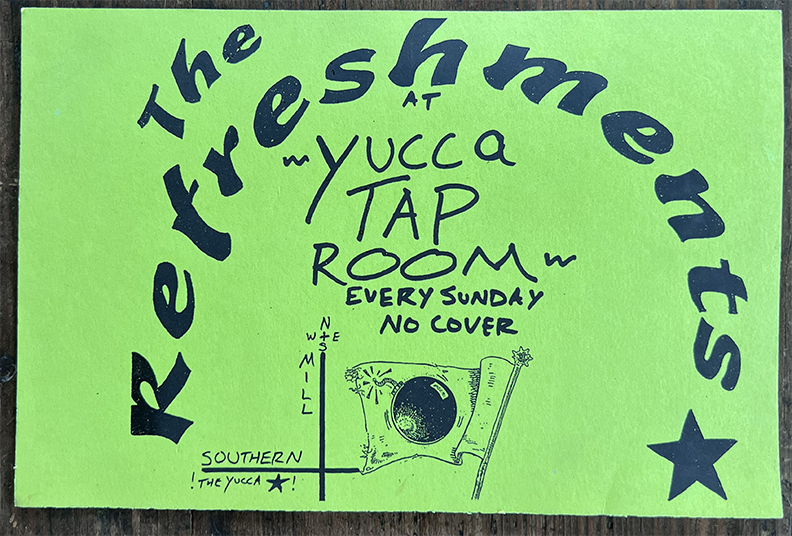 The
Refreshments
AT
~YUCCA
TAP
ROOM~
EVERY SUNDAY
NO COVER
N
W E
S
MILL
SOUTHERN
!THE YUCCA ★!